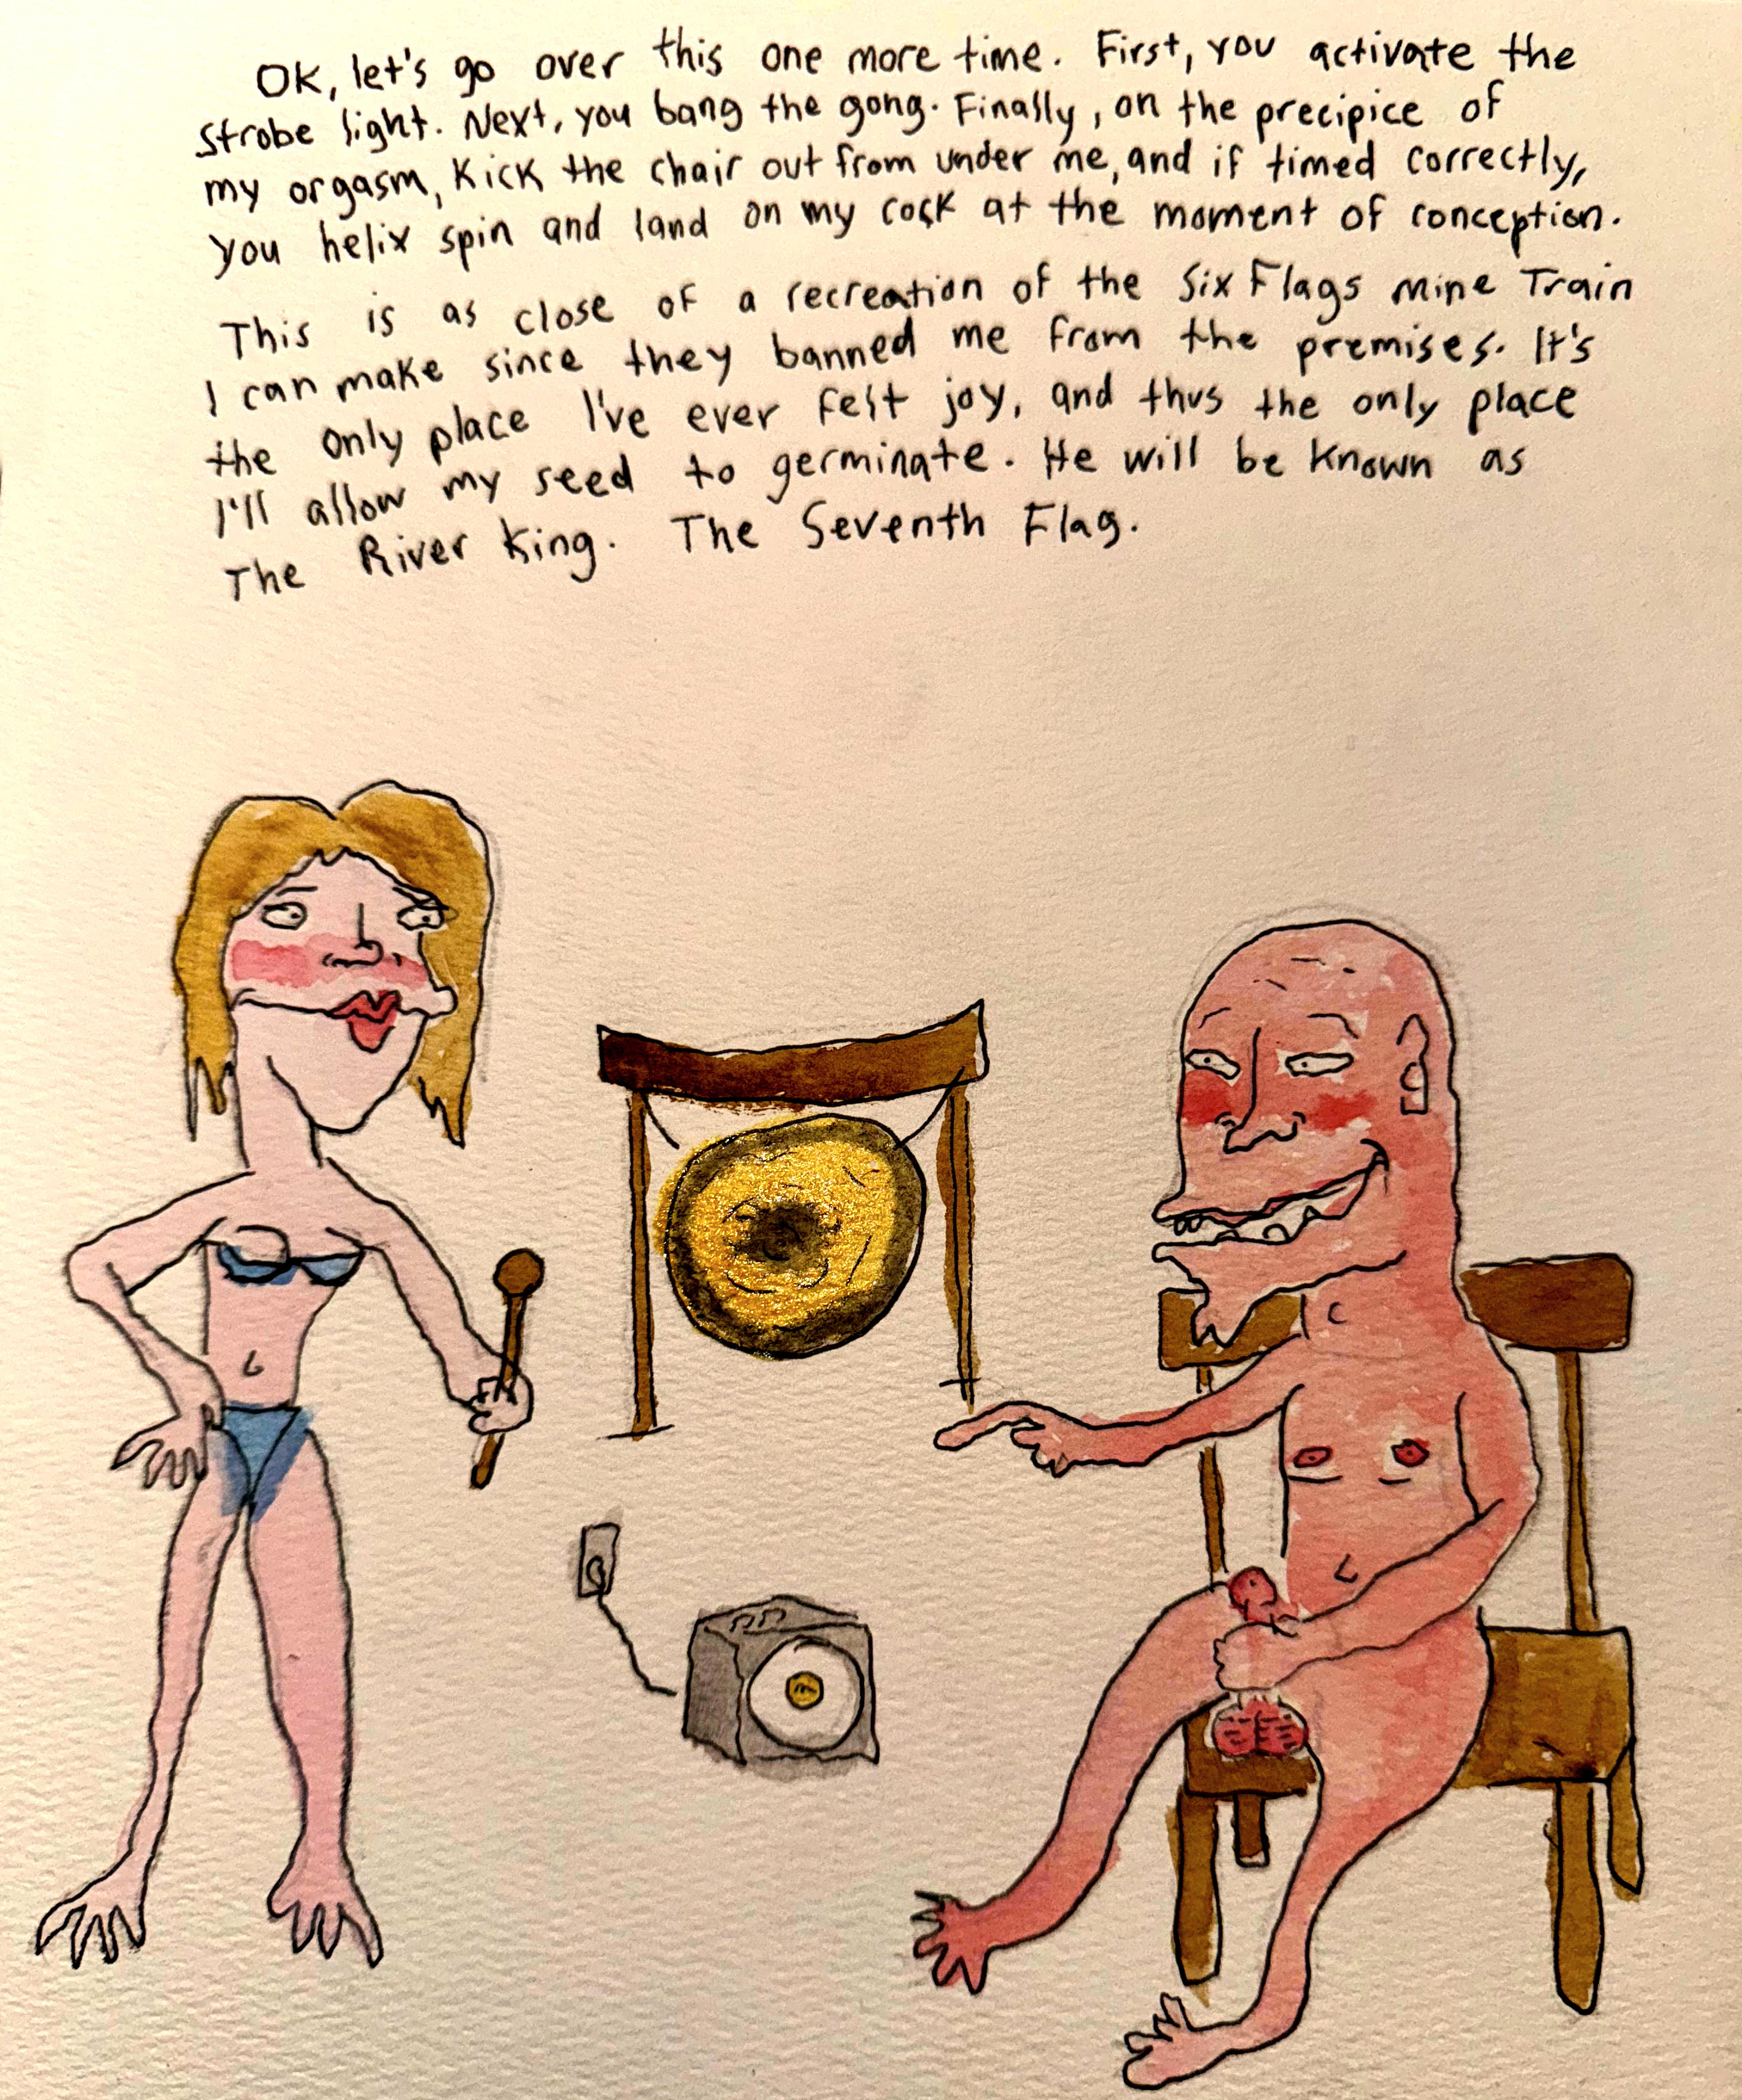 OK, let's go over this one more time. First, you activate the
strobe light. Next, you bang the gong. Finally, on the precipice of
my orgasm, kick the chair out from under me, and if timed correctly,
you helix spin and land on my cock at the moment of conception.
This is as close of a recreation of the Six Flags Mine Train
I can make since they banned me from the premises. It's
the only place I've ever felt joy, and thus the only place
I'll allow my seed to germinate. He will be known as
The River King. The Seventh Flag.